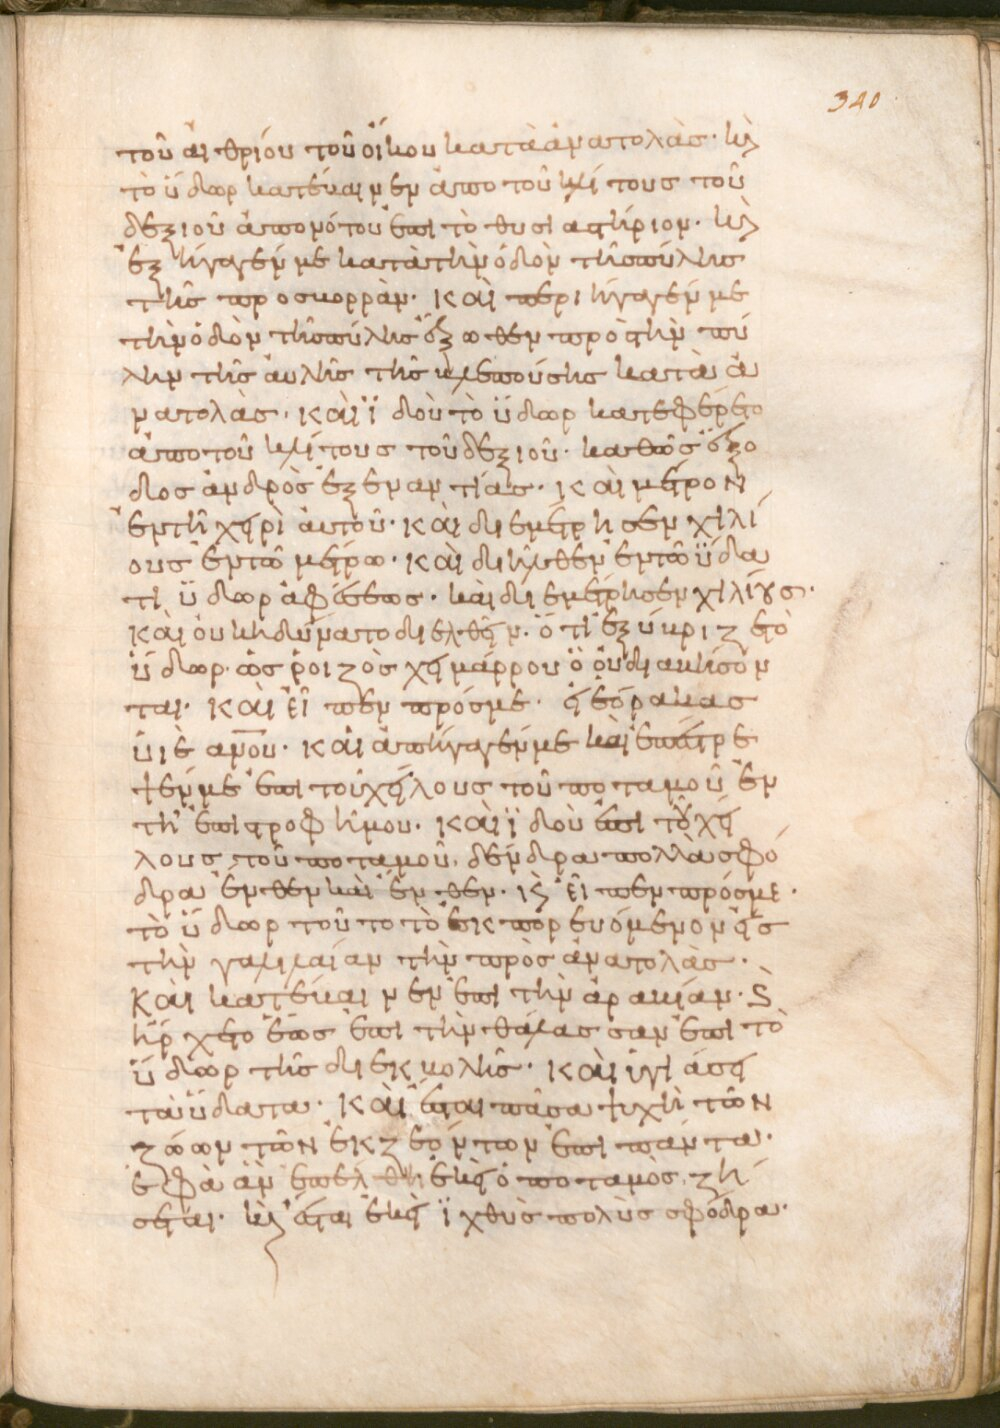 340
τοῦ αἰθρίου τοῦ οἴκου κατὰ ἀνατολὰς· κὶ
τὸ ὕδωρ κατέβαινεν ἀπο τοῦ κλίτους τοῦ
δεξιοῦ ἀπο νότου ἐπὶ τὸ θυσιαστήριον· κὶ
ἐξήγαγέν με κατὰ τὴν ὁδὸν τῆς πύλης
τῆς προς βορρὰν· καὶ περιήγαγέν με
τὴν ὁδὸν τῆς πύλης ἔξωθεν πρὸς τὴν πύ
λην τῆς αὐλῆς τῆς βλεπούσης κατὰ ἀ
νατολὰς· καὶ ϊδοὺ τὸ ὕδωρ κατεφέρετο
ἀπο τοῦ κλίτους τοῦ δεξιοῦ· καθὼς ἔξο
δος ἀνδρὸς ἐξεναντίας· καὶ μέτρον
ἐν τῆ χειρὶ αὐτοῦ· καὶ διεμέτρησεν χιλί
ους ἐν τῶ μέτρω· καὶ διῆλθεν ἐν τῶ ὕδα
τι ὕδωρ ἀφέσεως· καὶ διεμέτρησεν χιλίους·
καὶ οὐκ ἠδύνατο διελθεῖν· ὅτι ἐξύβριζε τὸ
ὕδωρ· ὡς ῥοιζὸς χειμάρρου ὃ οὐ διαβήσον
ται· καὶ εἶπεν πρός με· εἰ ἑόρακας
ὑιὲ ανου· καὶ ἀπήγαγέν με καὶ ἐπέστρε
ψέν με ἐπι τοὺ χείλους τοῦ ποταμοῦ ἐν
τῆ ἐπιστροφῆ μου· καὶ ϊδοὺ ἐπὶ τοῦ χεί
λους τοῦ ποταμοῦ, δένδρα πολλὰ σφό
δρα ἔνθεν καὶ ἔνθεν· κὶ εἶπεν πρός με·
τὸ ὕδωρ τοῦτο τὸ ἐκπορευόμενον εἰς
τὴν γαλιλαίαν τὴν πρὸς ἀνατολὰς·
καὶ κατέβαινεν ἐπὶ τὴν ἀραβίαν· κὶ
ἤρχετο ἕως ἐπὶ τὴν θάλασσαν ἐπὶ τὸ
ὕδωρ τῆς διεκβολῆς· καὶ ὑγιάσει
τὰ ὕδατα· καὶ ἔσται πᾶσα ψυχὴ τῶν
ζώων τῶν ἐκζεόντων ἐπὶ πάντα·
ἐφὰ ἂν ἐπέλθη ἐκεῖ ὁ ποταμὸς, ζή
σεται· κὶ ἔσται ἐκεῖ ϊχθὺς πολὺς σφόδρα·